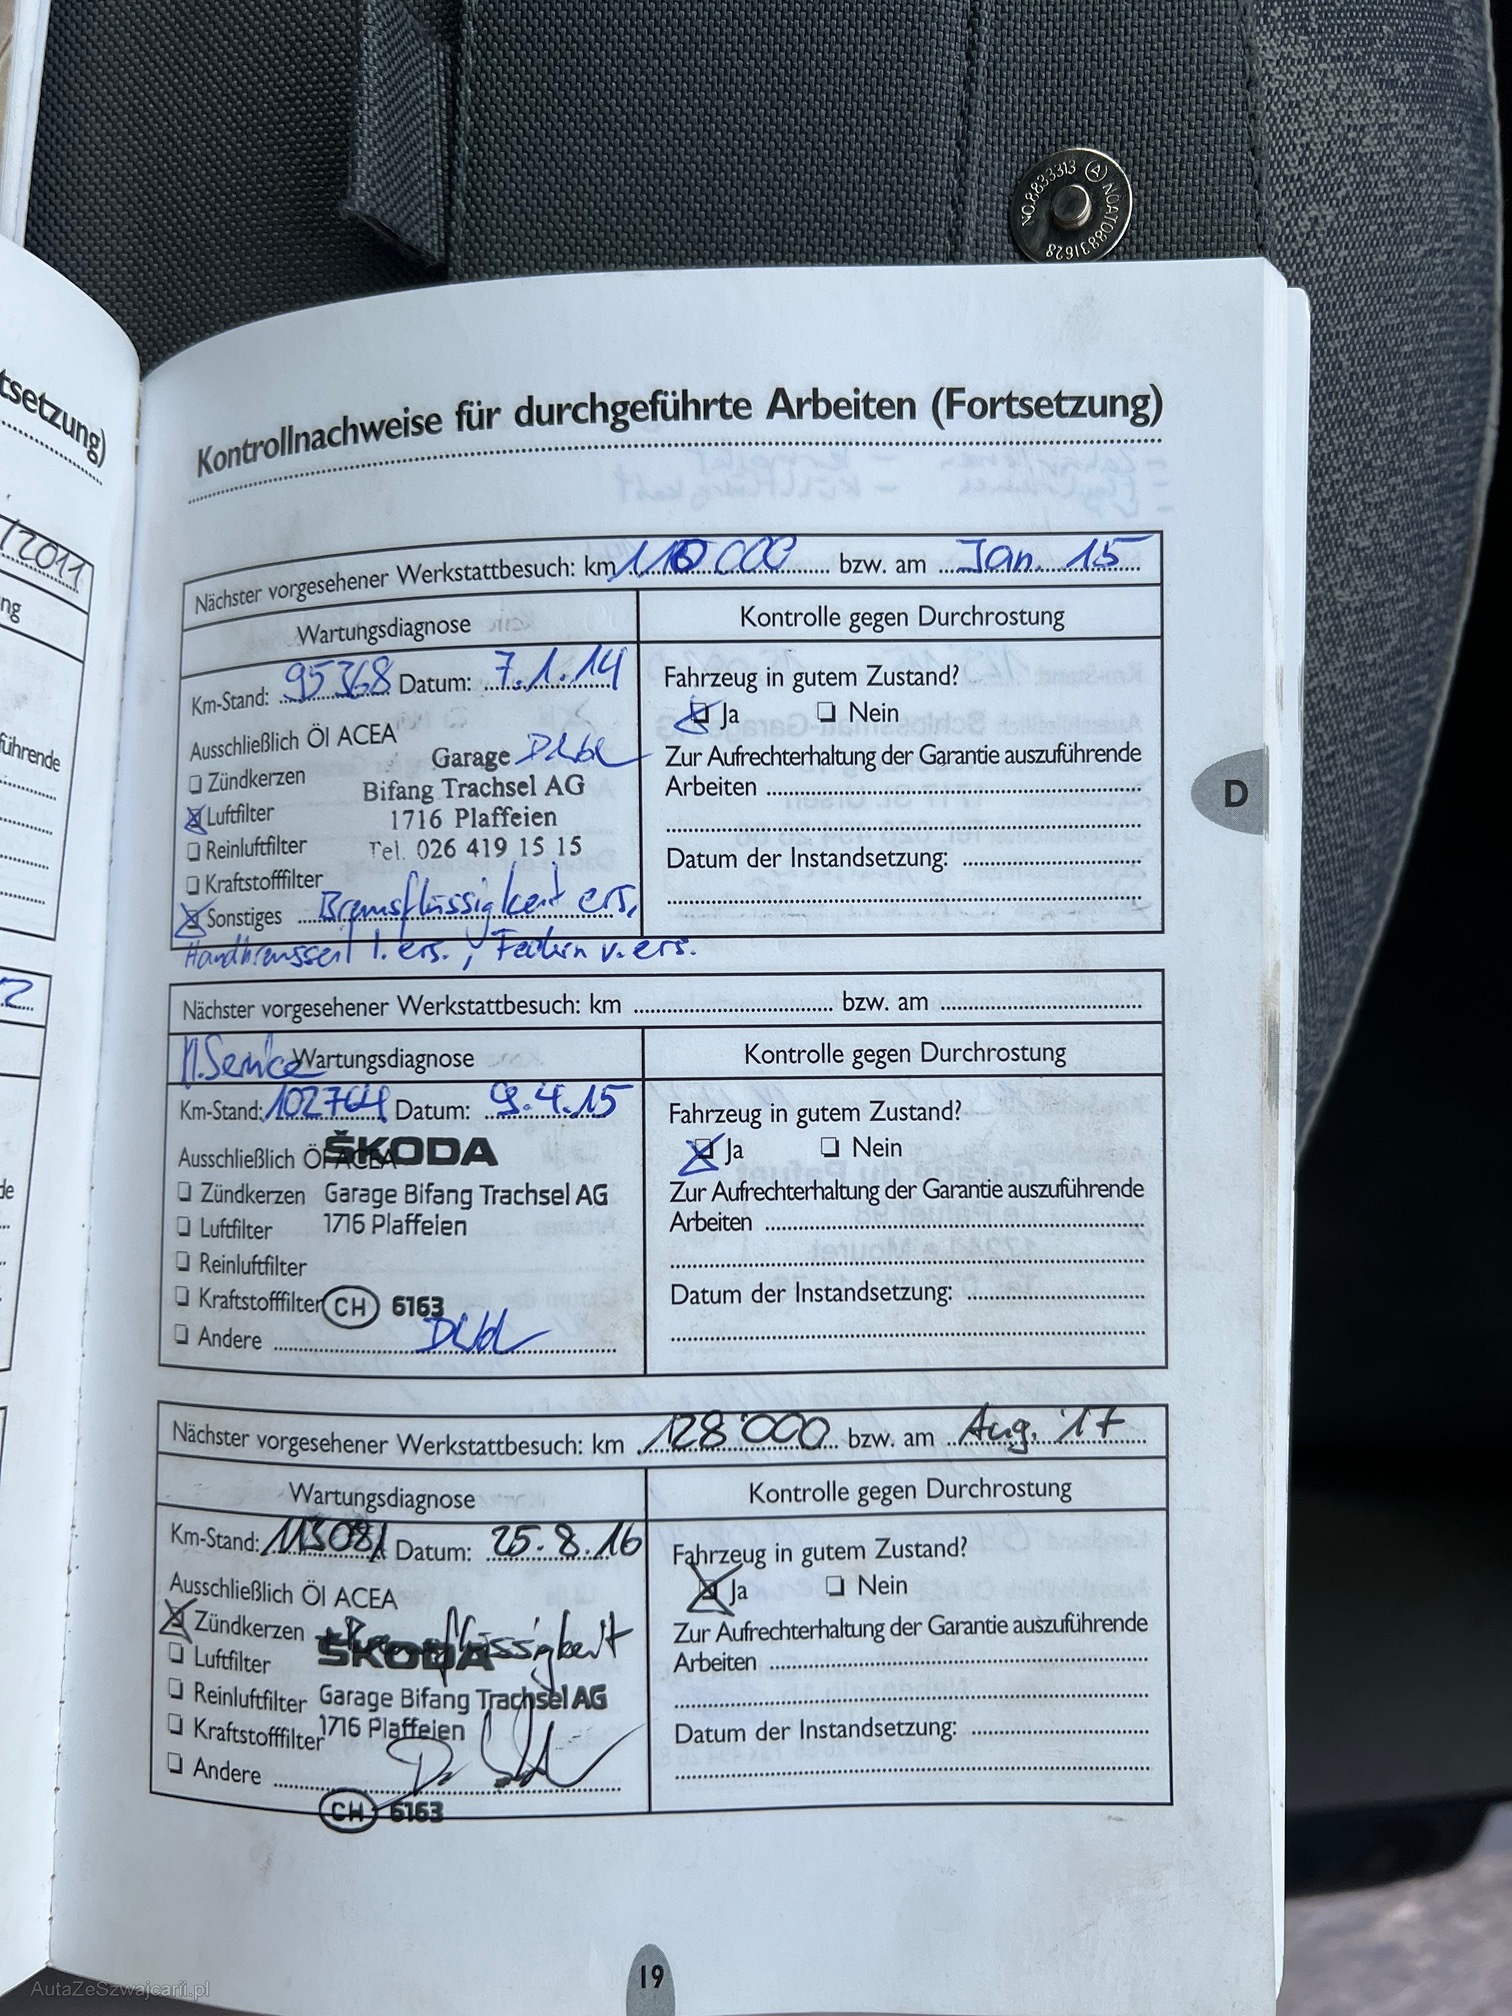 NO.8833313 A NOAT08831628
tsetzung)
Kontrollnachweise für durchgeführte Arbeiten (Fortsetzung)
/2011
ng
führende
2
de
Nächster vorgesehener Werkstattbesuch: km 110 000 bzw. am Jan. 15
Wartungsdiagnose
Kontrolle gegen Durchrostung
Km-Stand: 95368 Datum: 7.1.14
Fahrzeug in gutem Zustand?
Ja Nein
Ausschließlich Öl ACEA
Garage
Zündkerzen
Bifang Trachsel AG
Luftfilter
1716 Plaffeien
Reinluftfilter
Tel. 026 419 15 15
Kraftstofffilter
Sonstiges Bremsflüssigkeit ers,
Handbremsseil l. ers., Federn v. ers.
Zur Aufrechterhaltung der Garantie auszuführende
Arbeiten
Datum der Instandsetzung:
D
Nächster vorgesehener Werkstattbesuch: km bzw. am
Wartungsdiagnose
Kontrolle gegen Durchrostung
Km-Stand: 102764 Datum: 9.4.15
Fahrzeug in gutem Zustand?
Ja Nein
Ausschließlich Öl ACEA
ŠKODA
Zündkerzen
Garage Bifang Trachsel AG
Luftfilter
1716 Plaffeien
Reinluftfilter
Kraftstofffilter
CH 6163
Andere
Zur Aufrechterhaltung der Garantie auszuführende
Arbeiten
Datum der Instandsetzung:
Nächster vorgesehener Werkstattbesuch: km 128'000 bzw. am Aug. 17
Wartungsdiagnose
Kontrolle gegen Durchrostung
Km-Stand: 113081 Datum: 25.8.16
Fahrzeug in gutem Zustand?
Ja Nein
Ausschließlich Öl ACEA
Zündkerzen + Bremsflüssigkeit
ŠKODA
Luftfilter
Reinluftfilter
Garage Bifang Trachsel AG
Kraftstofffilter
1716 Plaffeien
Andere
CH 6163
Zur Aufrechterhaltung der Garantie auszuführende
Arbeiten
Datum der Instandsetzung:
19
AutaZeSzwajcarii.pl